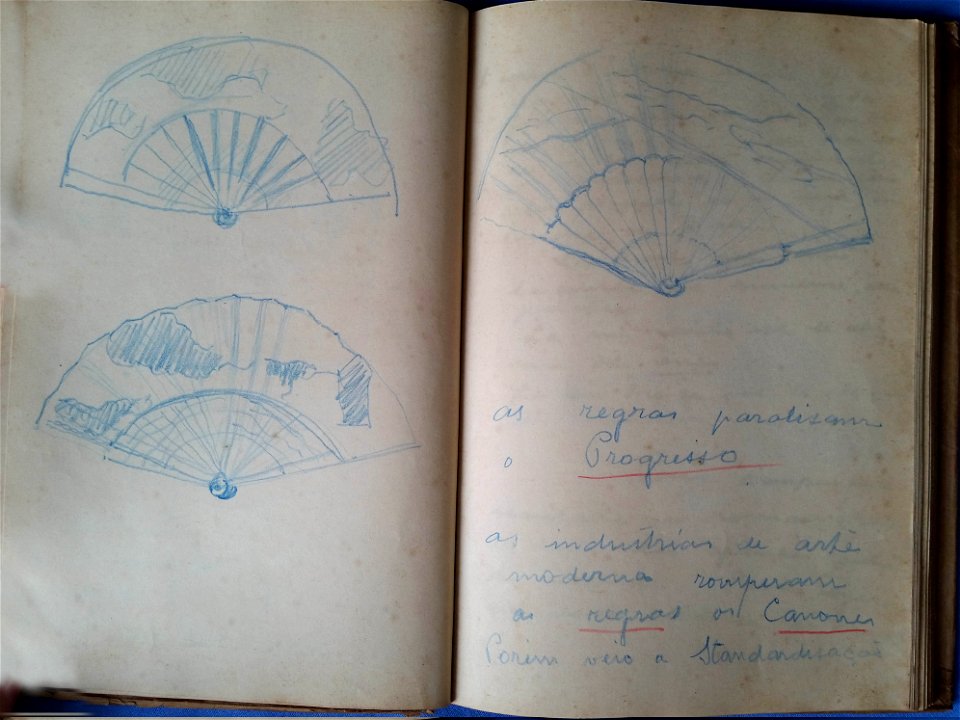 as regras paralisam
o Progresso
as industrias de arte
moderna romperam
as regras os Canones
Porem veio a Standardisação